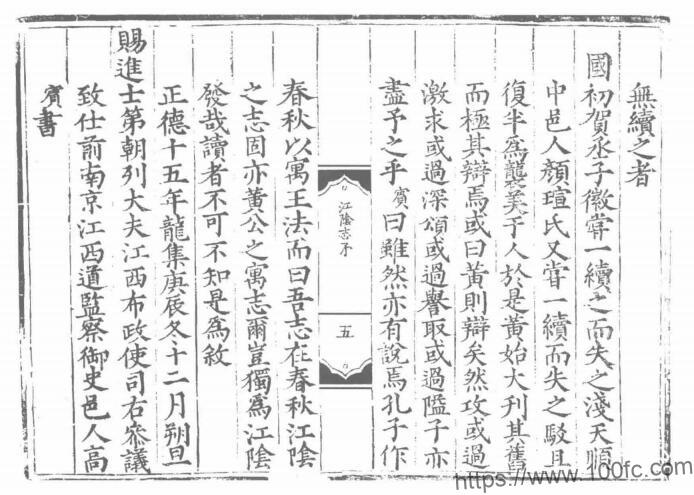 無續之者
國初賀丞子徽嘗一續之而失之淺天順
中邑人顏瑄氏又嘗一續而失之駁且
復半為襲美子人於是黃始大刊其舊
而極其辯焉或曰黃則辯矣然攻或過
激求或過深頌或過譽取或過隘子亦
盡予之乎賓曰雖然亦有說焉孔子作
江陰志序
五
春秋以寓王法而曰吾志在春秋江陰
之志固亦黃公之寓志爾豈獨為江陰
發哉讀者不可不知是為敘
正德十五年龍集庚辰冬十二月朔旦
賜進士第朝列大夫江西布政使司右參議
致仕前南京江西道監察御史邑人高
賓書
https://www.100fc.com